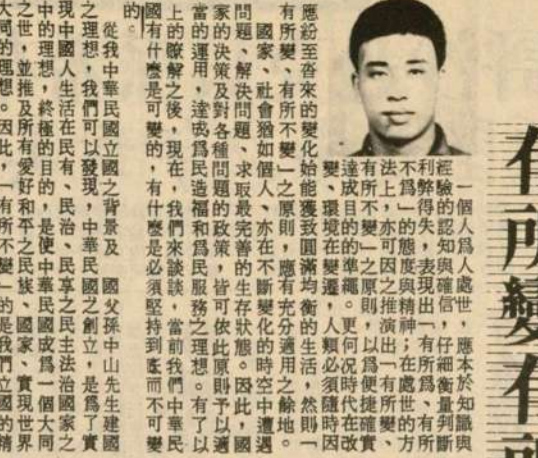 有所變有所
一個人爲人處世，應本於知識與
經驗的認知與確信，仔細衡量判斷
利弊得失，表現出「有所爲、有所
不爲」的態度與精神；在處世的方
法上，亦可因之推演出「有所變、
有所不變」之原則，以爲便捷確實
達成目的的準繩。更何況時代在改
變、環境在變遷，人類必須隨時因
應紛至沓來的變化始能獲致圓滿均衡的生活，然則「
有所變、有所不變」之原則，應有充分適用之餘地。
國家、社會猶如個人、亦在不斷變化的時空中遭遇
問題、解決問題、求取最完善的生存狀態。因此，國
家的決策及對各種問題的政策，皆可依此原則予以適
當的運用，達成爲民造福和爲民服務之理想。有了以
上的瞭解之後，現在，我們來談談，當前我們中華民
國有什麼是可變的，有什麼是必須堅持到底而不可變
的。
從我中華民國立國之背景及　國父孫中山先生建國
之理想，我們可以發現，中華民國之創立，是爲了實
現中國人生活在民有、民治、民享之民主法治國家之
中的理想，終極的目的，是使中華民國成爲一個大同
之世，並推及所有愛好和平之民族、國家、實現世界
大同的理想。因此，「有所不變」的是我們立國的精